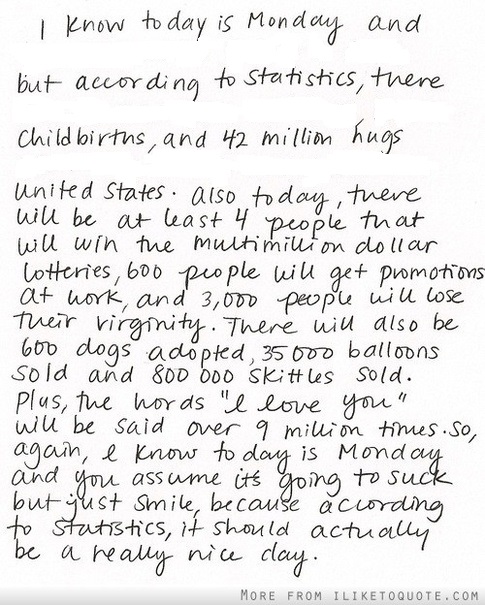 I know today is Monday and
but according to statistics, there
childbirths, and 42 million hugs
united states. also today, there
will be at least 4 people that
will win the multimillion dollar
lotteries, 600 people will get promotions
at work, and 3,000 people will lose
their virginity. There will also be
600 dogs adopted, 35 000 balloons
sold and 800 000 skittles sold.
Plus, the words "I love you"
will be said over 9 million times. So,
again, I know today is Monday
and you assume it's going to suck
but just smile, because according
to statistics, it should actually
be a really nice day.
MORE FROM ILIKETOQUOTE.COM